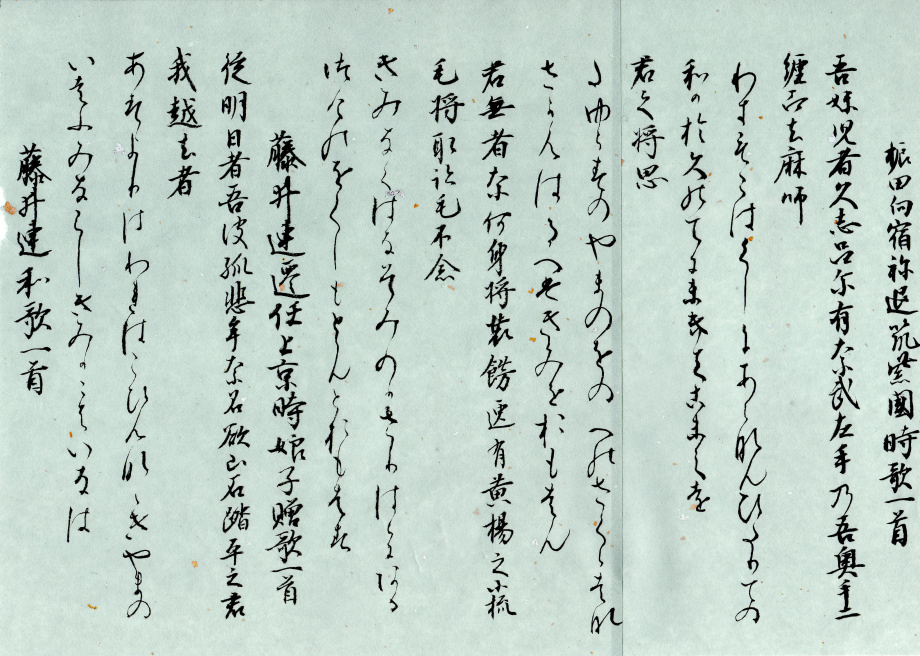 振田向宿祢退筑紫國時歌一首
吾妹児者久志呂尓有奈武左手乃吾奥手二
纒而去麻師
わきもこはくしろにあらなんひたりての
わかおくのてにまきてこましを
君之将思
たゆらきのやまのをのへのさくらはな
さかんはるへはきみをおもはん
君無者奈何身将装餝匣有黄楊之小梳
毛将取跡毛不念
きみなくはなそみのかさりはこなる
つけのをくしもとらんともおもはす
藤井連遷任上京時娘子贈歌一首
従明日者吾波孤悲牟奈名欲山石踏平之君
我越去者
あすよりはわれはこひんなゝきやまの
いはふみならしきみかこえいなは
藤井連和歌一首